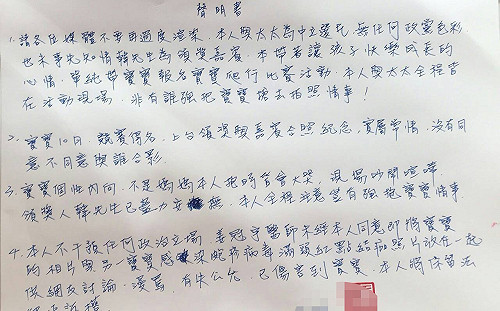 聲明書
1. 請各位媒體不要再過度渲染，本人與太太為中立選民，無任何政黨色彩
也未事先知情韓先生為頒獎嘉賓，本帶著讓孩子快樂成長的
心情，單純帶寶寶報名寶寶爬行比賽活動，本人與太太全程皆
在活動現場，非有誰強把寶寶搶去拍照情事！
2. 寶寶10月，競賽得名，上台領獎與嘉賓合照紀念，實屬常情，沒有同
意不同意與誰合影。
3. 寶寶個性內向，不是媽媽本人抱時皆會大哭，現場吵鬧喧嘩，
頒獎人韓先生已盡力安撫，本人全程注意並無有強抱寶寶情事
4. 本人不干預任何政治立場，姜冠宇醫師未經本人同意即將寶寶
的相片與另一寶寶感染腸病毒滿頭紅點結痂照片放在一起
供網友討論、謾罵，有失公允，已傷害到寶寶，本人將保留法